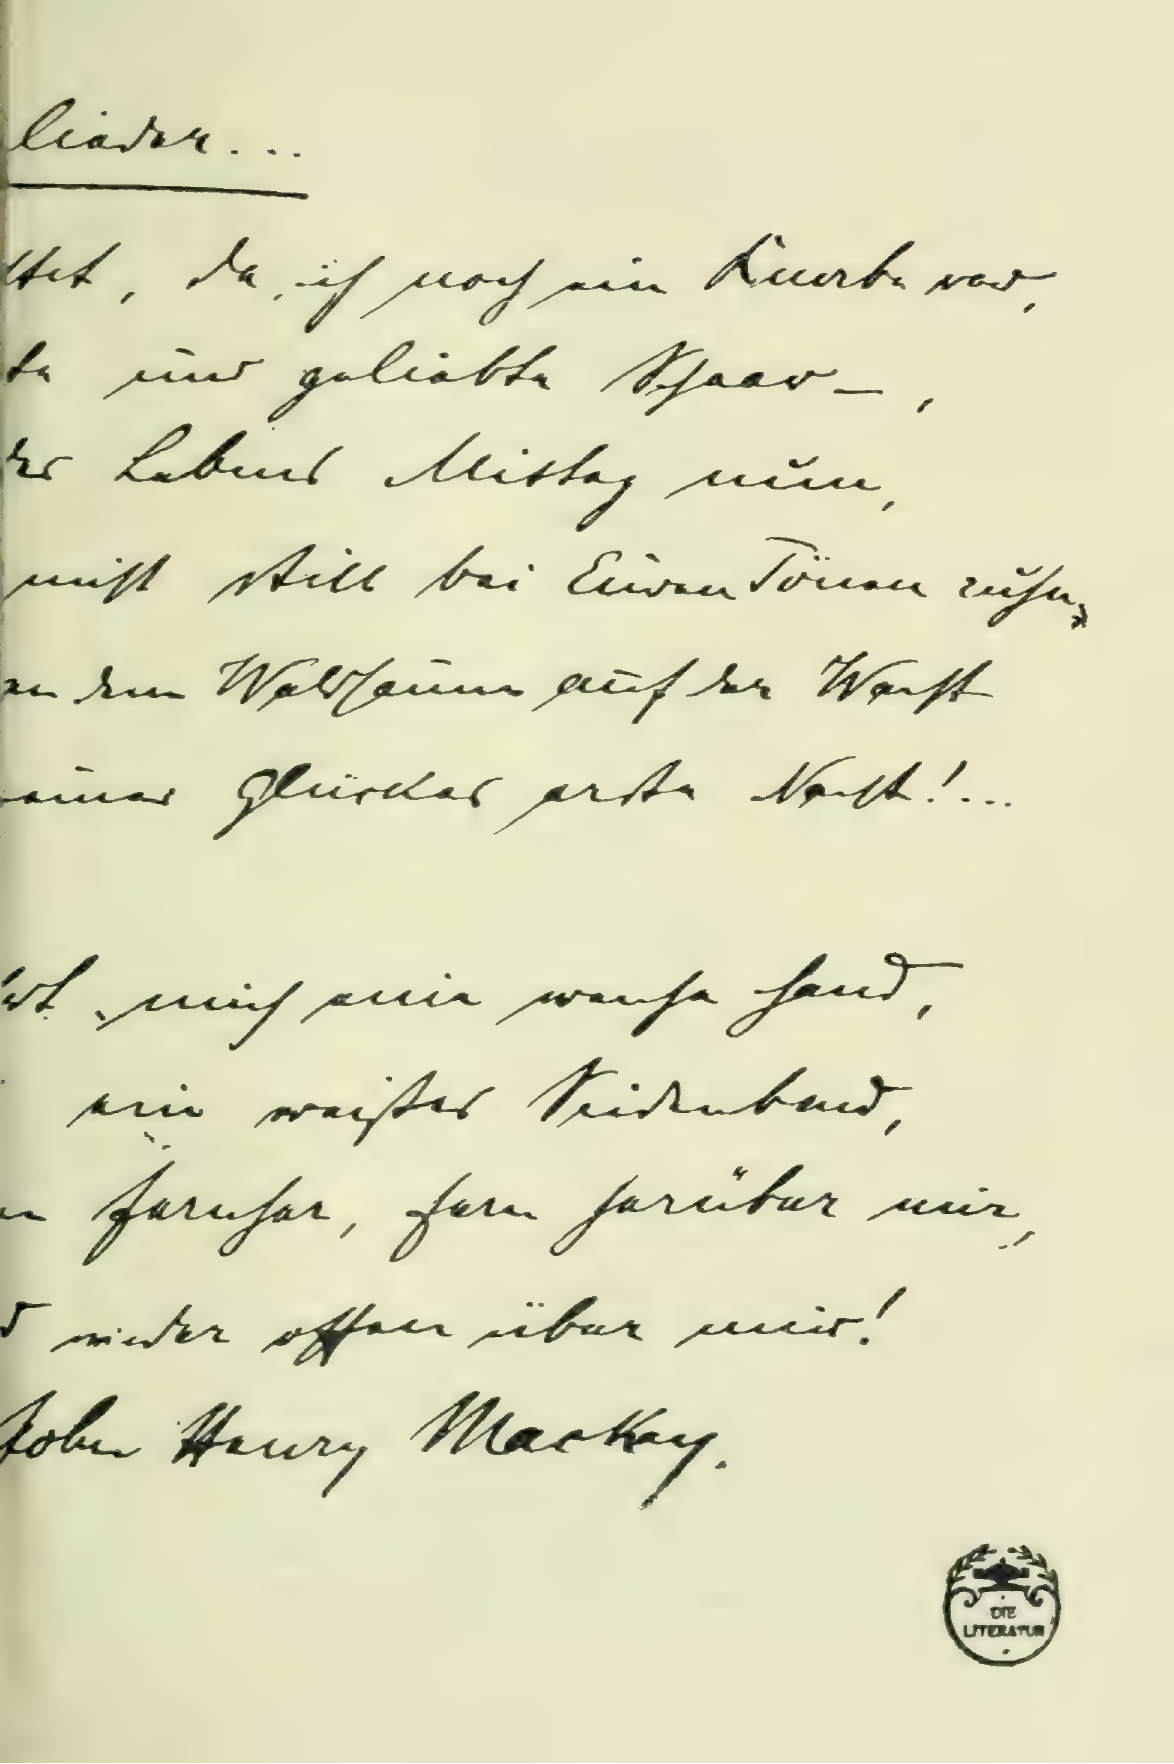 lieder...
ttet, da ich noch ein Knabe war,
te und geliebte Schaar –,
des Lebens Mittag nun,
nicht still bei Euren Tönen ruhn,
an dem Waldsaum auf der Wacht
eines Glückes erste Nacht!...
mich eine weiche Hand,
ein weißes Seidenband,
fernher, fern herüber mir,
wieder offen über mir!
John Henry Mackay.
DIE
LITERATUR